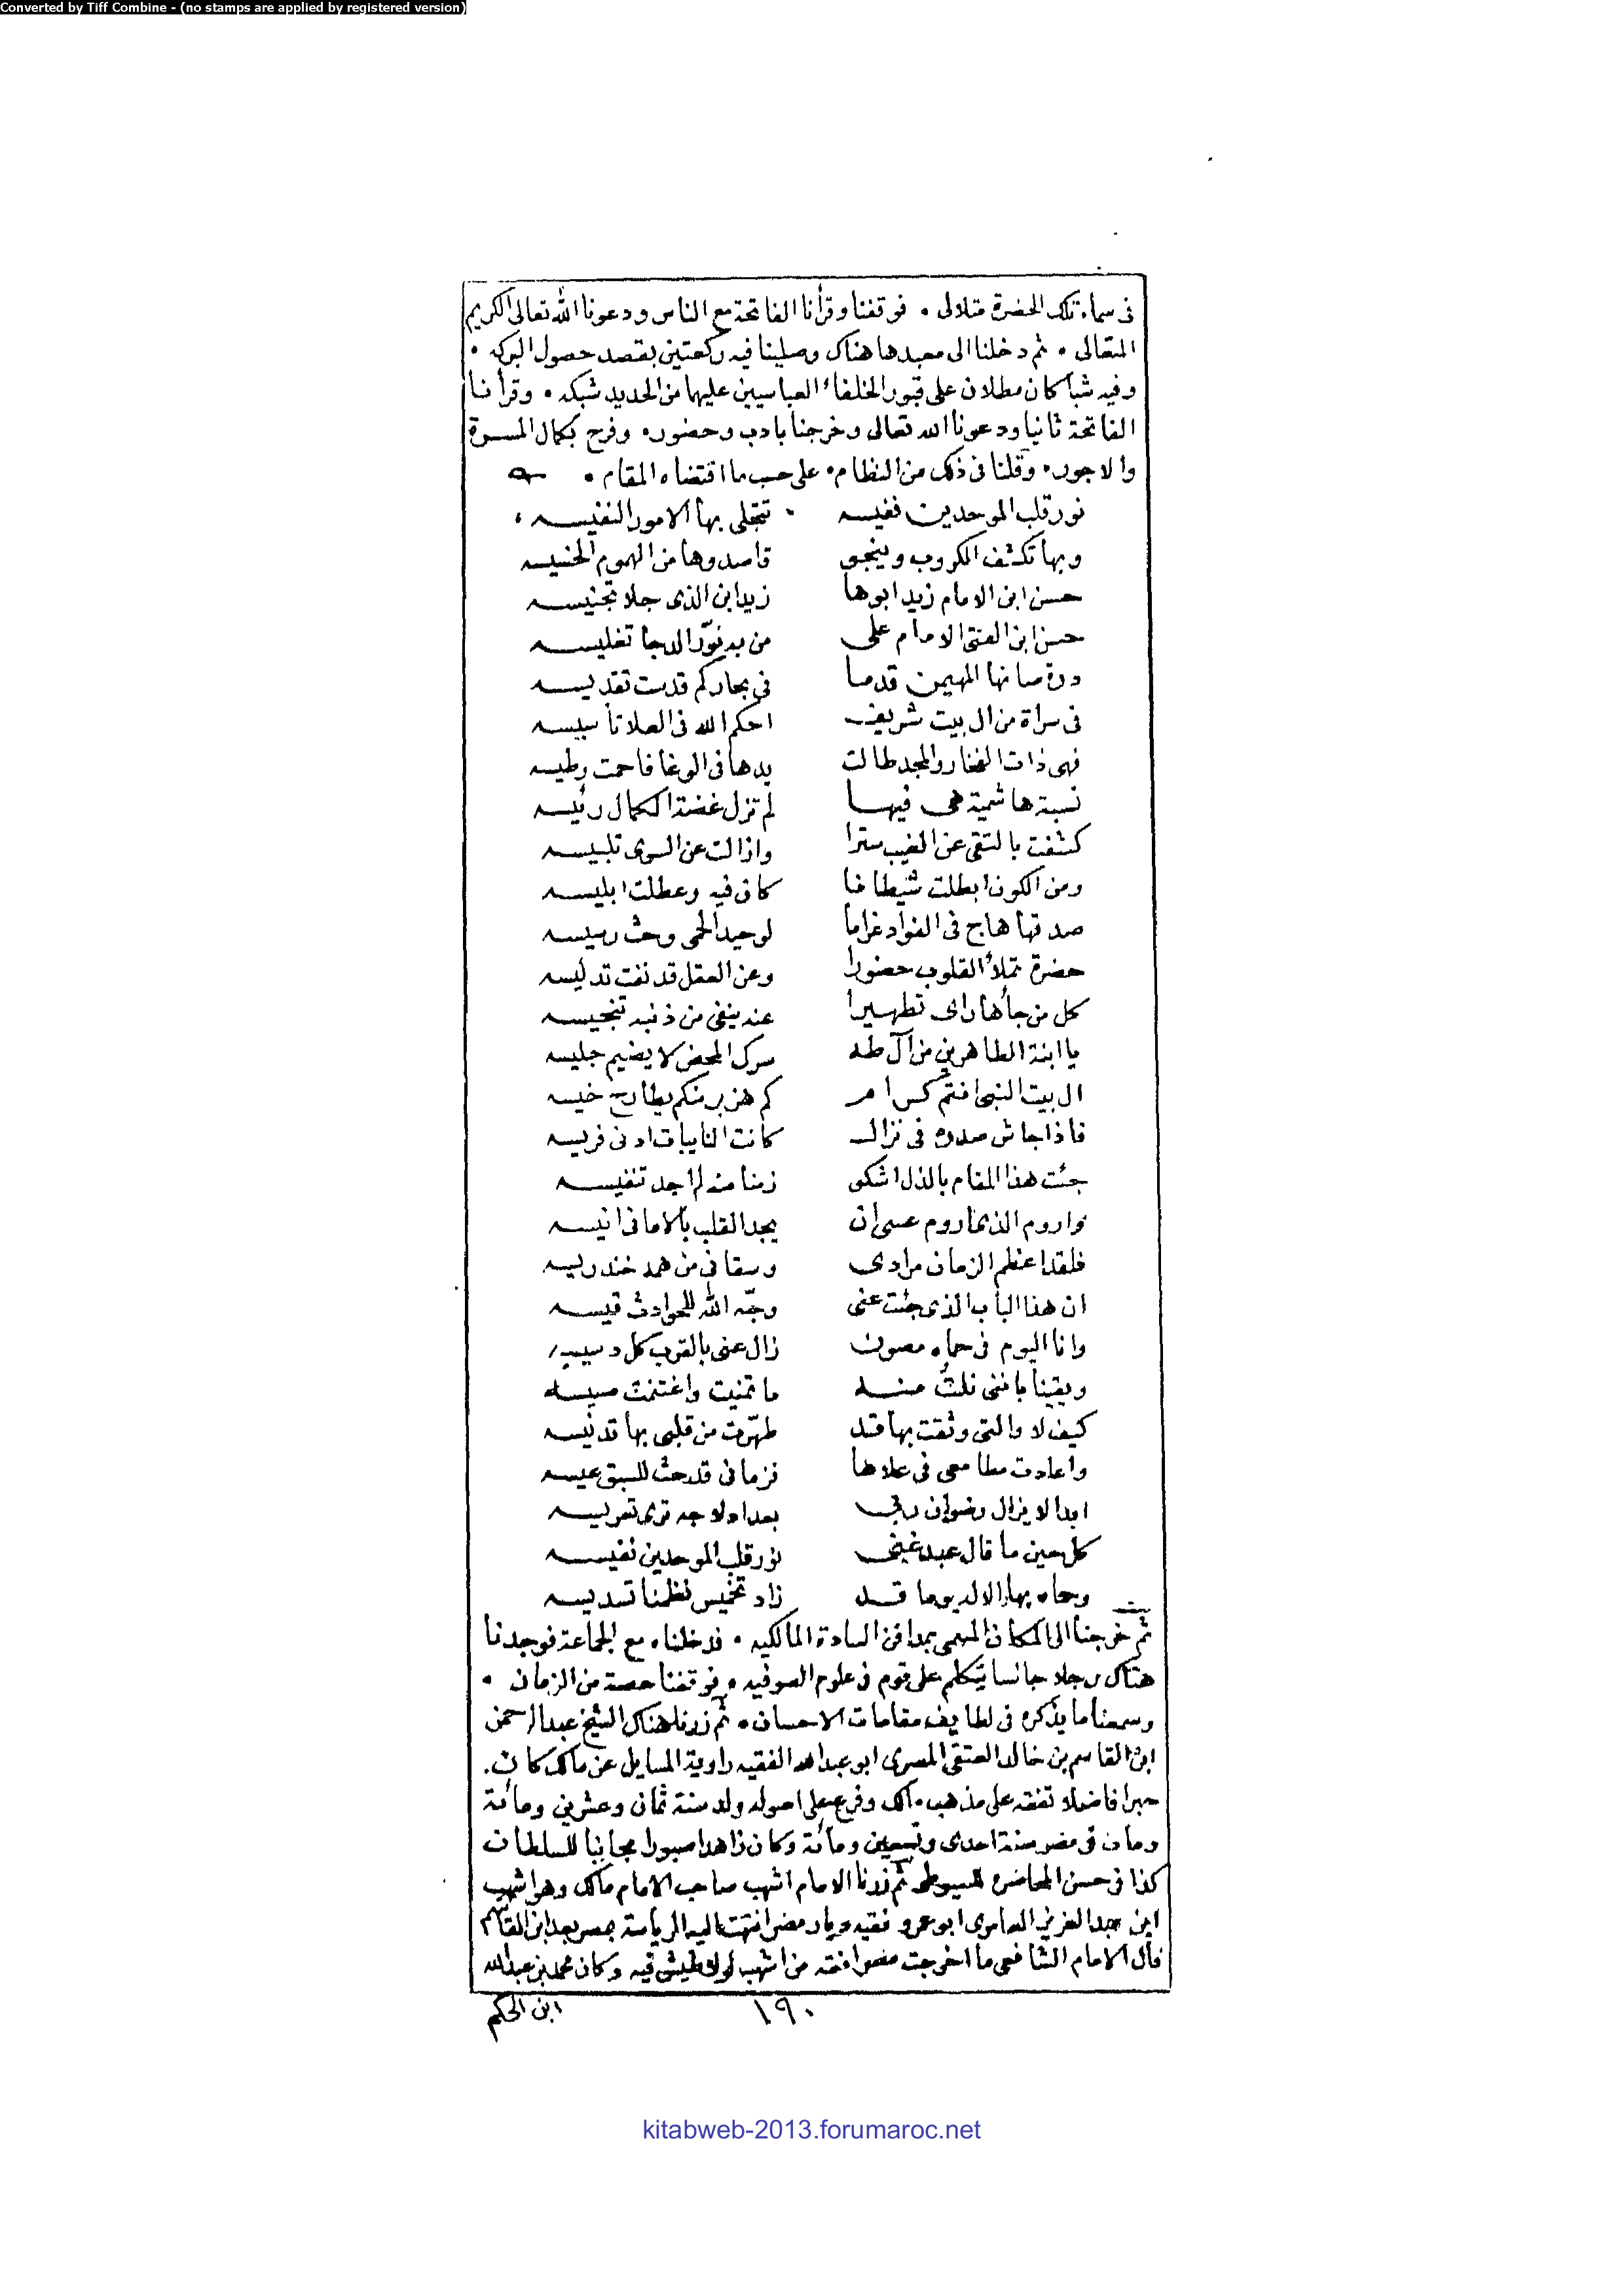 Converted by Tiff Combine - (no stamps are applied by registered version)
فى سماء تلك الحضرة متلالى • فوقفنا وقرأنا الفاتحة مع الناس ودعونا الله تعالى الكريم
المتعالى • ثم دخلنا الى معبدها هناك وصلينا فيه ركعتين بقصد حصول البركه •
وفيه شباكان مطلان على قبور الخلفاء العباسيين عليها من الحديد شبكه • وقرأنا
الفاتحة ثانيا ودعونا الله تعالى وخرجنا بادب وحضور • وفرح بكمال المسرة
والاجور • وقلنا فى ذلك من النظام • على حسب ما اقتضاه المقام •
نور قلب الموحدين نفيسه • تتجلى بها الامور النفيسه
وبها تكشف الكروب وينجو قاصدوها من الهموم الخسيسه
حسن ابن الامام زيد ابوها زيد ابن الذى جلا تجنيسه
حسن ابن الفتى الامام على من به نوّر الدجا تغليسه
درة صانها المهيمن قدما فى بحار كم قدست تقديسه
فى سراة من ال بيت شريف احكم الله فى العلا تأسيسه
فهى ذات الفخار والمجد طالت يدها فى الوغا فاحمت وطيسه
نسبة هاشمية هى فيها لم تزل غضة الكمال رئيسه
كشفت بالتقى عن الغيب سترا وازالت عن السوى تلبيسه
ومن الكون ابطلت شيطانا كان فيه وعطلت ابليسه
صدقها هاج فى الفواد غراما لوحيد الحمى وحث رسيسه
حضرة تملأ القلوب حضورا وعن العقل قد نفت تدليسه
كل من جأها راى تطهيرا عنه ينفى من ذنبه تنجيسه
يا ابنة الطاهرين من آل طه سرك المحض لا يضيم جليسه
ال بيت النبى انتم كرام كم هزبر منكم يطارح خيسه
فاذا جاش صدره فى نزال كانت النايبات ادنى فريسه
جئت هذا المقام بالذل اشكو زمنا منه لم اجد تنفيسه
واروم الذى اروم عسى ان يجد القلب بالامانى انيسه
فلقد اعظم الزمان مرادى وسقانى من همه خندريسه
ان هذا الباب الذى جئت عنى وجّه الله للحوادث قيسه
وانا اليوم فى حماه مصون زال عنى بالقرب كل دسيسه
ويقينا باننى نلت منه ما تمنيت واغتنمت مسيسه
كيف لا والتى وثقت بها قد طهّرت من قلبى بها تدنيسه
واعادت مطامعى فى علاها فزمانى قد حث للسبق عيسه
ابدا لا يزال رضوان ربى بعدا ولاجه ترى تعريسه
كل حين ما قال عبد غنى نور قلب الموحدين نفيسه
وحماه بها الاله يوما قد زاد تخميس نظمنا تسديسه
ثم خرجنا الى المكان المسمى بمدافن السادة المالكيه • فدخلناه مع الجماعة فوجدنا
هناك رجلا جالسا يتكلم على قوم فى علوم الصوفيه • فوقفنا حصة من الزمان •
وسمعنا ما يذكره فى لطايف مقامات الاحسان • ثم زرنا هناك الشيخ عبد الرحمن
ابن القاسم بن خالد العتقى المصرى ابو عبد الله الفقيه راوية المسايل عن مالك كان
حبرا فاضلا تفقه على مذهب مالك وفرع على اصوله ولد سنة ثمان وعشرين ومائة
ومات فى مصر سنة احدى وتسعين ومائة وكان زاهدا صبورا مجانبا للسلطان
كذا فى حسن المحاضره للسيوطى ثم زرنا الامام اشهب صاحب الامام مالك وهو اشهب
ابن عبد العزيز العامرى ابو عمرو فقيه ديار مصر انتهت اليه الرياسة بمصر بعد ابن القاسم
قال الامام الشافعى ما اخرجت مصر افقه من اشهب لولا طيش فيه وكان محمد بن عبد الله
١٩٠
ابن الحكم
kitabweb-2013.forumaroc.net